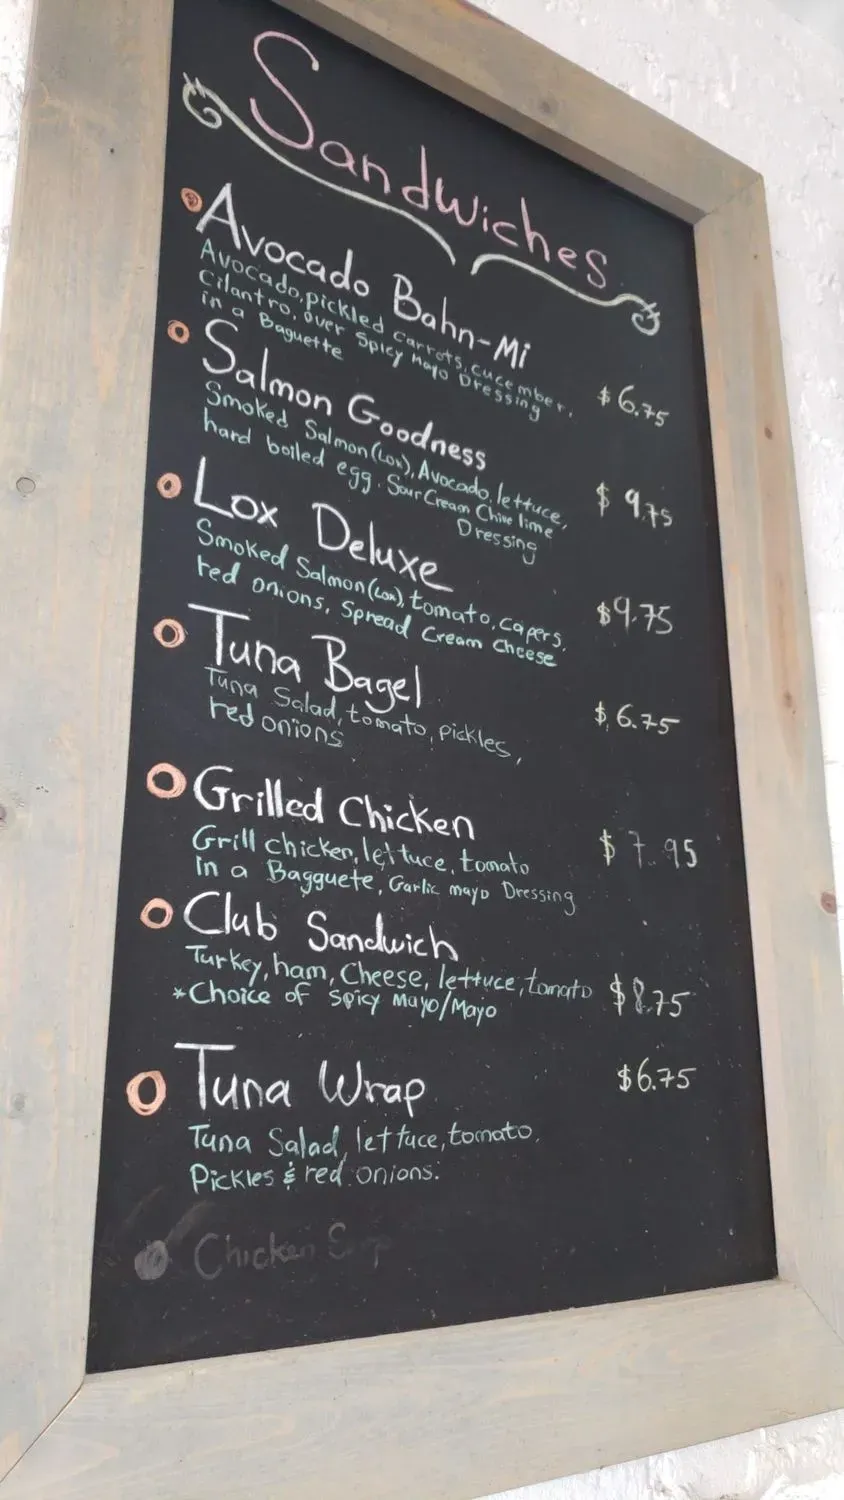 Sandwiches
Avocado Bahn-Mi
Avocado, pickled carrots, cucember,
Cilantro, over Spicy Mayo Dressing
in a Baguette
$6.75
Salmon Goodness
Smoked Salmon (Lox), Avocado, lettuce,
hard boiled egg. Sour Cream Chive lime
Dressing
$9.75
Lox Deluxe
Smoked Salmon (Lox), tomato, capers,
red onions, Spread Cream Cheese
$9.75
Tuna Bagel
Tuna Salad, tomato, pickles,
red onions
$6.75
Grilled Chicken
Grill chicken, lettuce, tomato
in a Bagguete, Garlic mayo Dressing
$7.95
Club Sandwich
Turkey, ham, Cheese, lettuce, tomato
*Choice of Spicy Mayo/Mayo
$8.75
Tuna Wrap
$6.75
Tuna Salad, lettuce, tomato,
Pickles & red onions.
Chicken